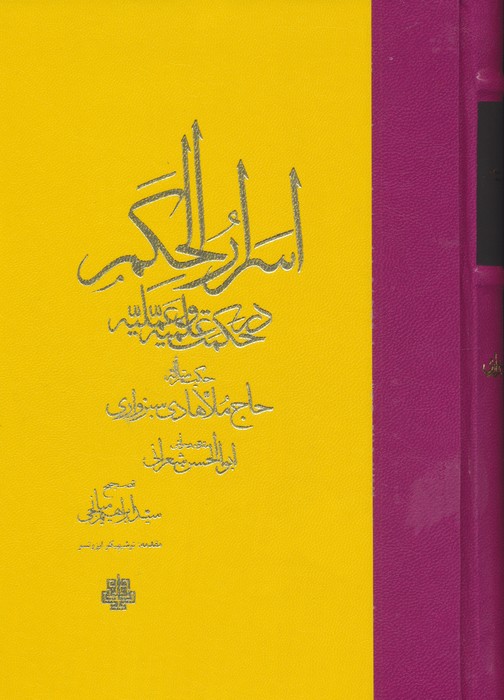 اسرار الحکم
در حکمت علمیه و عملیه
حاج ملا هادی سبزواری
ابوالحسن شعرانی
تصحیح
سید ابراهیم میانجی
مقدمه: توشیهیکو ایزوتسو